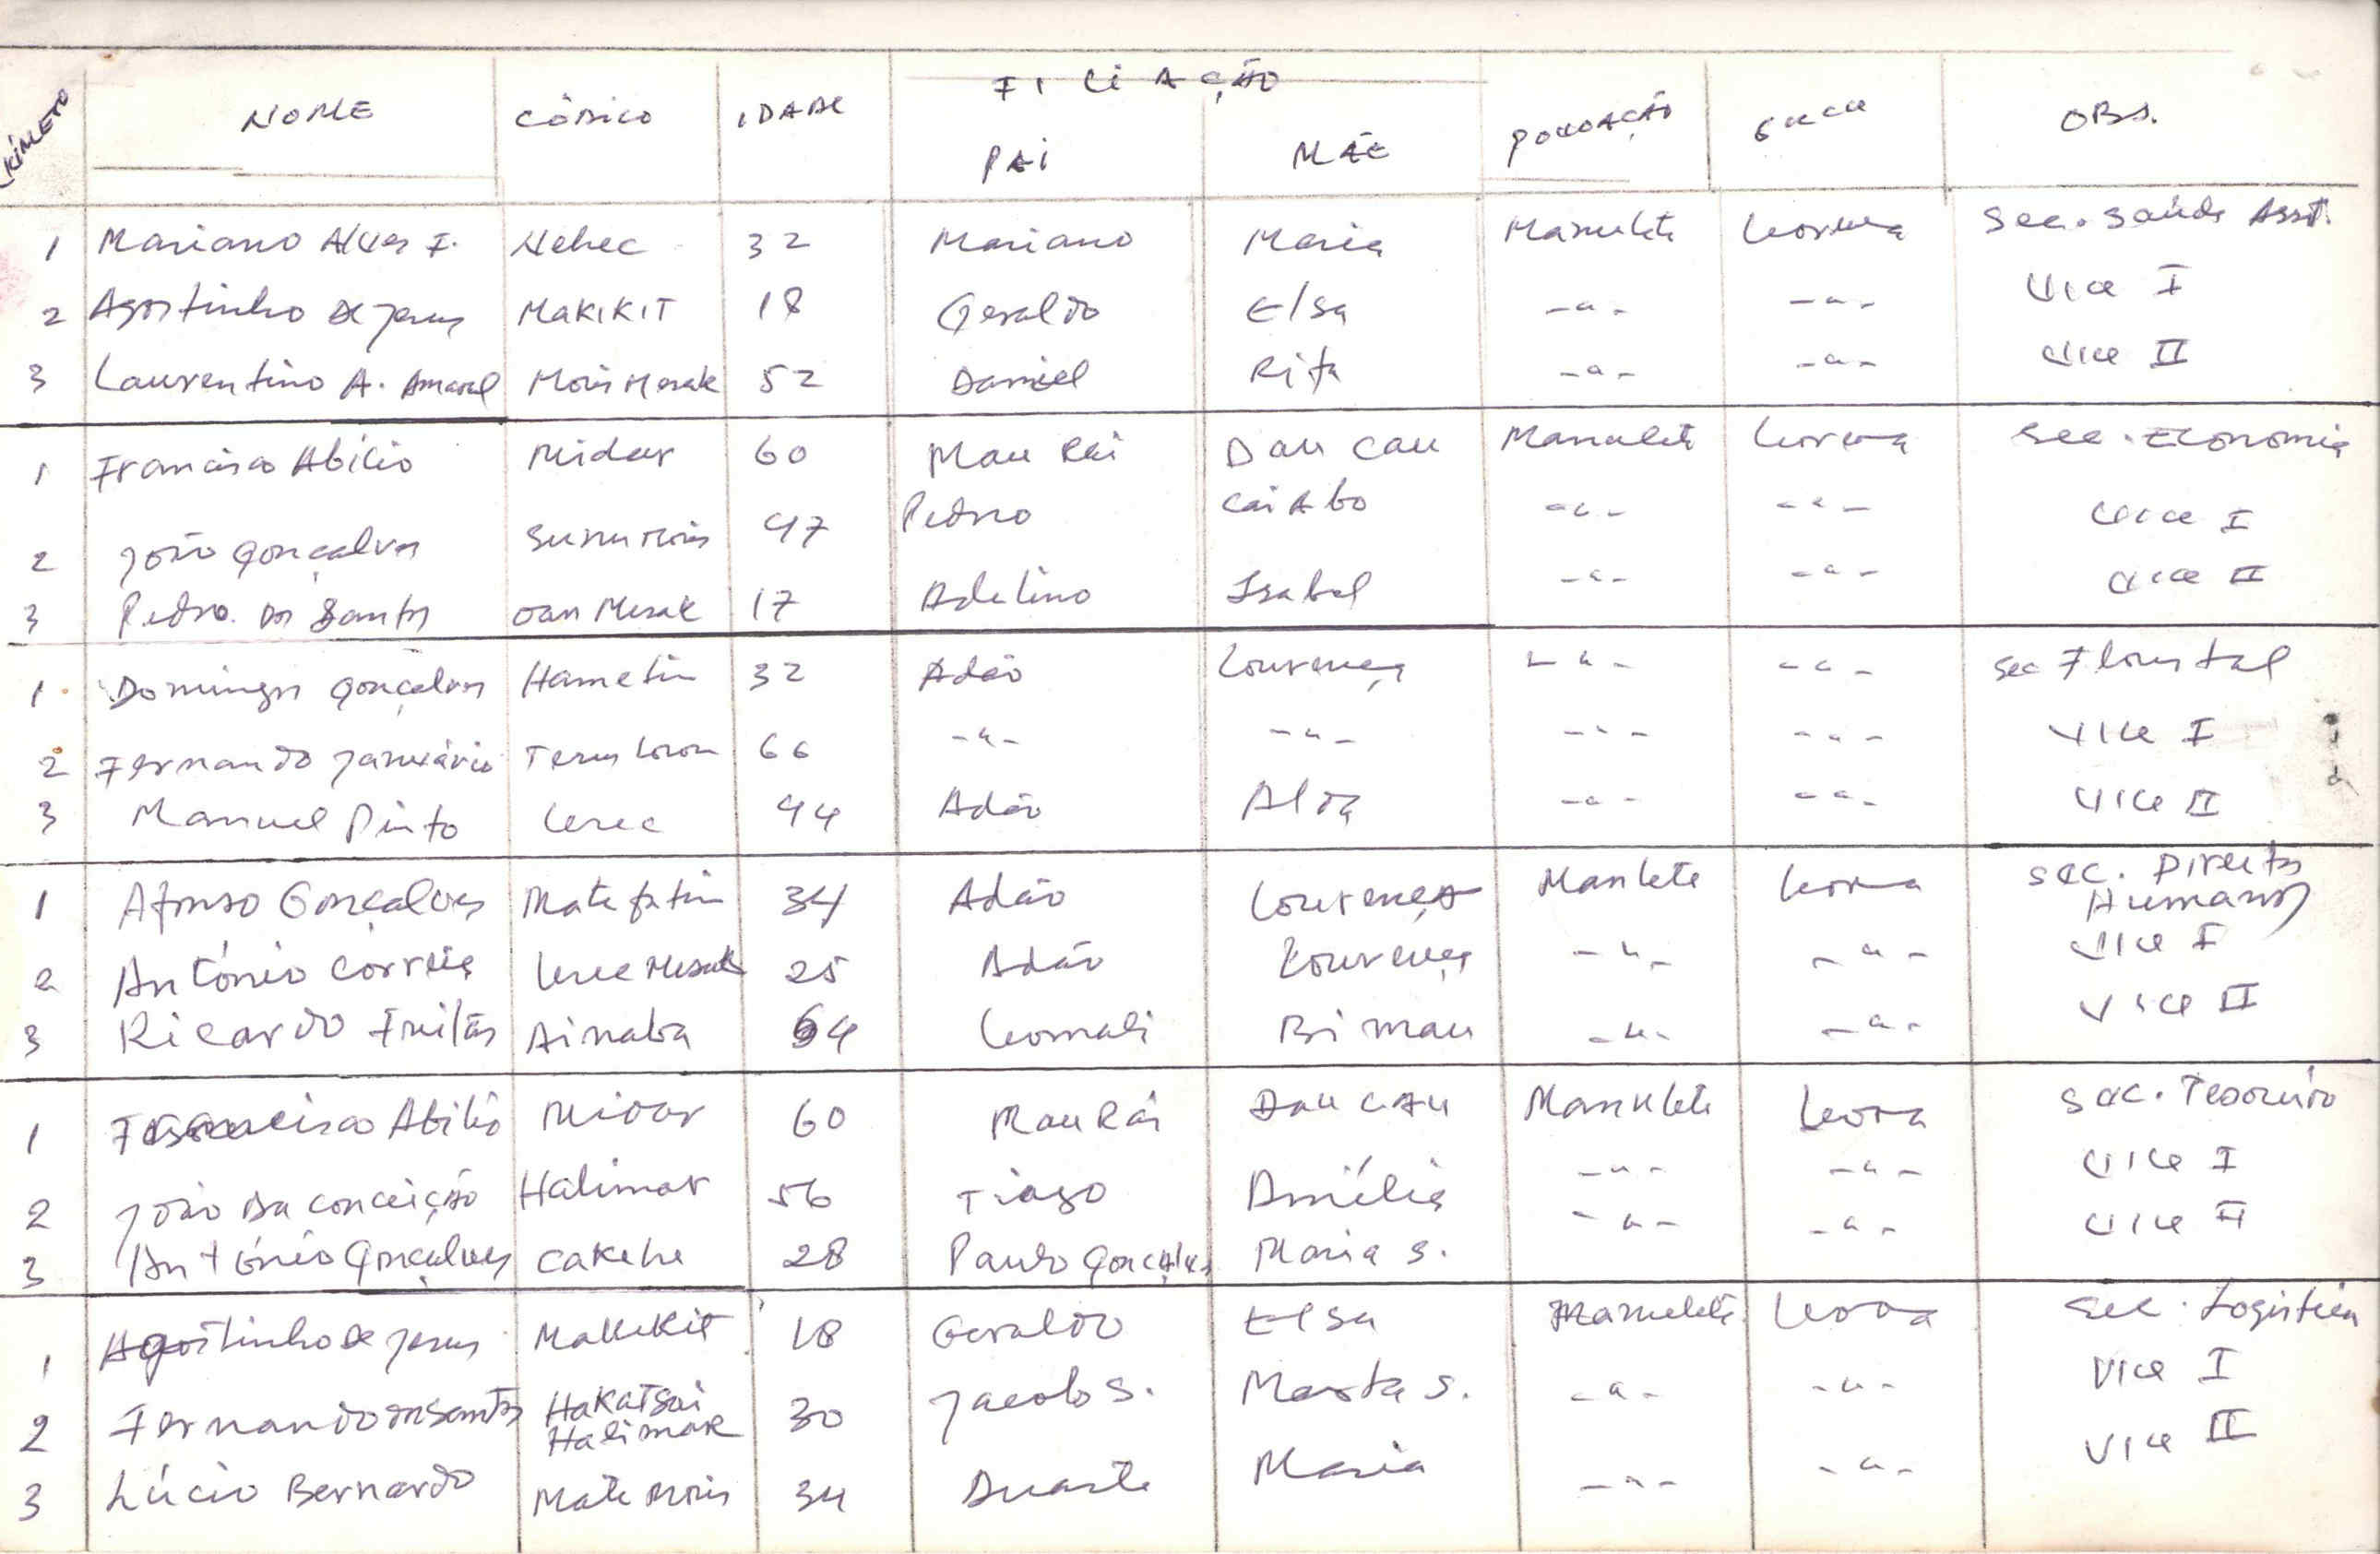 FILIAÇÃO
NOME CÓDICO IDADE PAI MÃE POVOAÇÃO SUCU OBS.
1 Mariano Alves F. Nehec 32 Mariano Maria Manulete Leorema Sec. Saúde Asst.
2 Agostinho de Jesus MAKIKIT 18 Geraldo Elsa -"- -"- Vice I
3 Laurentino A. Amaral Moris Mesak 52 Daniel Rita -"- -"- Vice II
1 Francisco Abilio Midar 60 Mau Rai Dau Cau Manulete Sec. Economia
2 João Gonçalves Sunu Moris 47 Pedro Cai Abo -"- -"- Vice I
3 Pedro dos Santos Oan Mesak 17 Adelino Isabel -"- -"- Vice II
1 Domingos Gonçalves Hametin 32 Adão Lourença -"- -"- Sec Florestal
2 Fernando Januário Terus Loron 66 -"- -"- -"- -"- Vice I
3 Manuel Pinto Lerec 44 Adão Alda -"- -"- Vice II
1 Afonso Gonçalves Mate fatin 34 Adão Lourença Manlete Sec. Direitos
Humanos
2 António Correia Lerec Mesak 25 Adão Lourença -"- -"- Vice I
3 Ricardo Freitas Ainaba 64 Leomali Bi mau -"- -"- Vice II
1 Francisco Abilio Midar 60 Mau Rai Dau Cau Manulete Sec. Tesoreiro
2 João da Conceição Halimar 56 Tiago Amélia -"- -"- Vice I
3 António Gonçalves Cakehe 28 Paulo Gonçalves Maria S. -"- -"- Vice II
1 Agostinho de Jesus Makikit 18 Geraldo Elsa Manulete Sec. Logistica
2 Fernando dos Santos Hakatsai
Halimar 30 Jacob S. Marta S. -"- -"- Vice I
3 Lúcio Bernardo Mate Moris 34 Duarte Maria -"- -"- Vice II